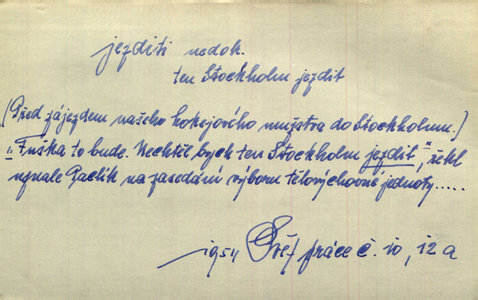 jezditi nedok.
ten Stockholm jezdit
(Před zájezdem našeho hokejového mužstva do Stockholmu.)
"Fuška to bude. Nechtěl bych ten Stockholm jezdit," řekl
znale Pavlík na zasedání výboru tělovýchovné jednoty.....
1954 Svět práce č. 10, 12a